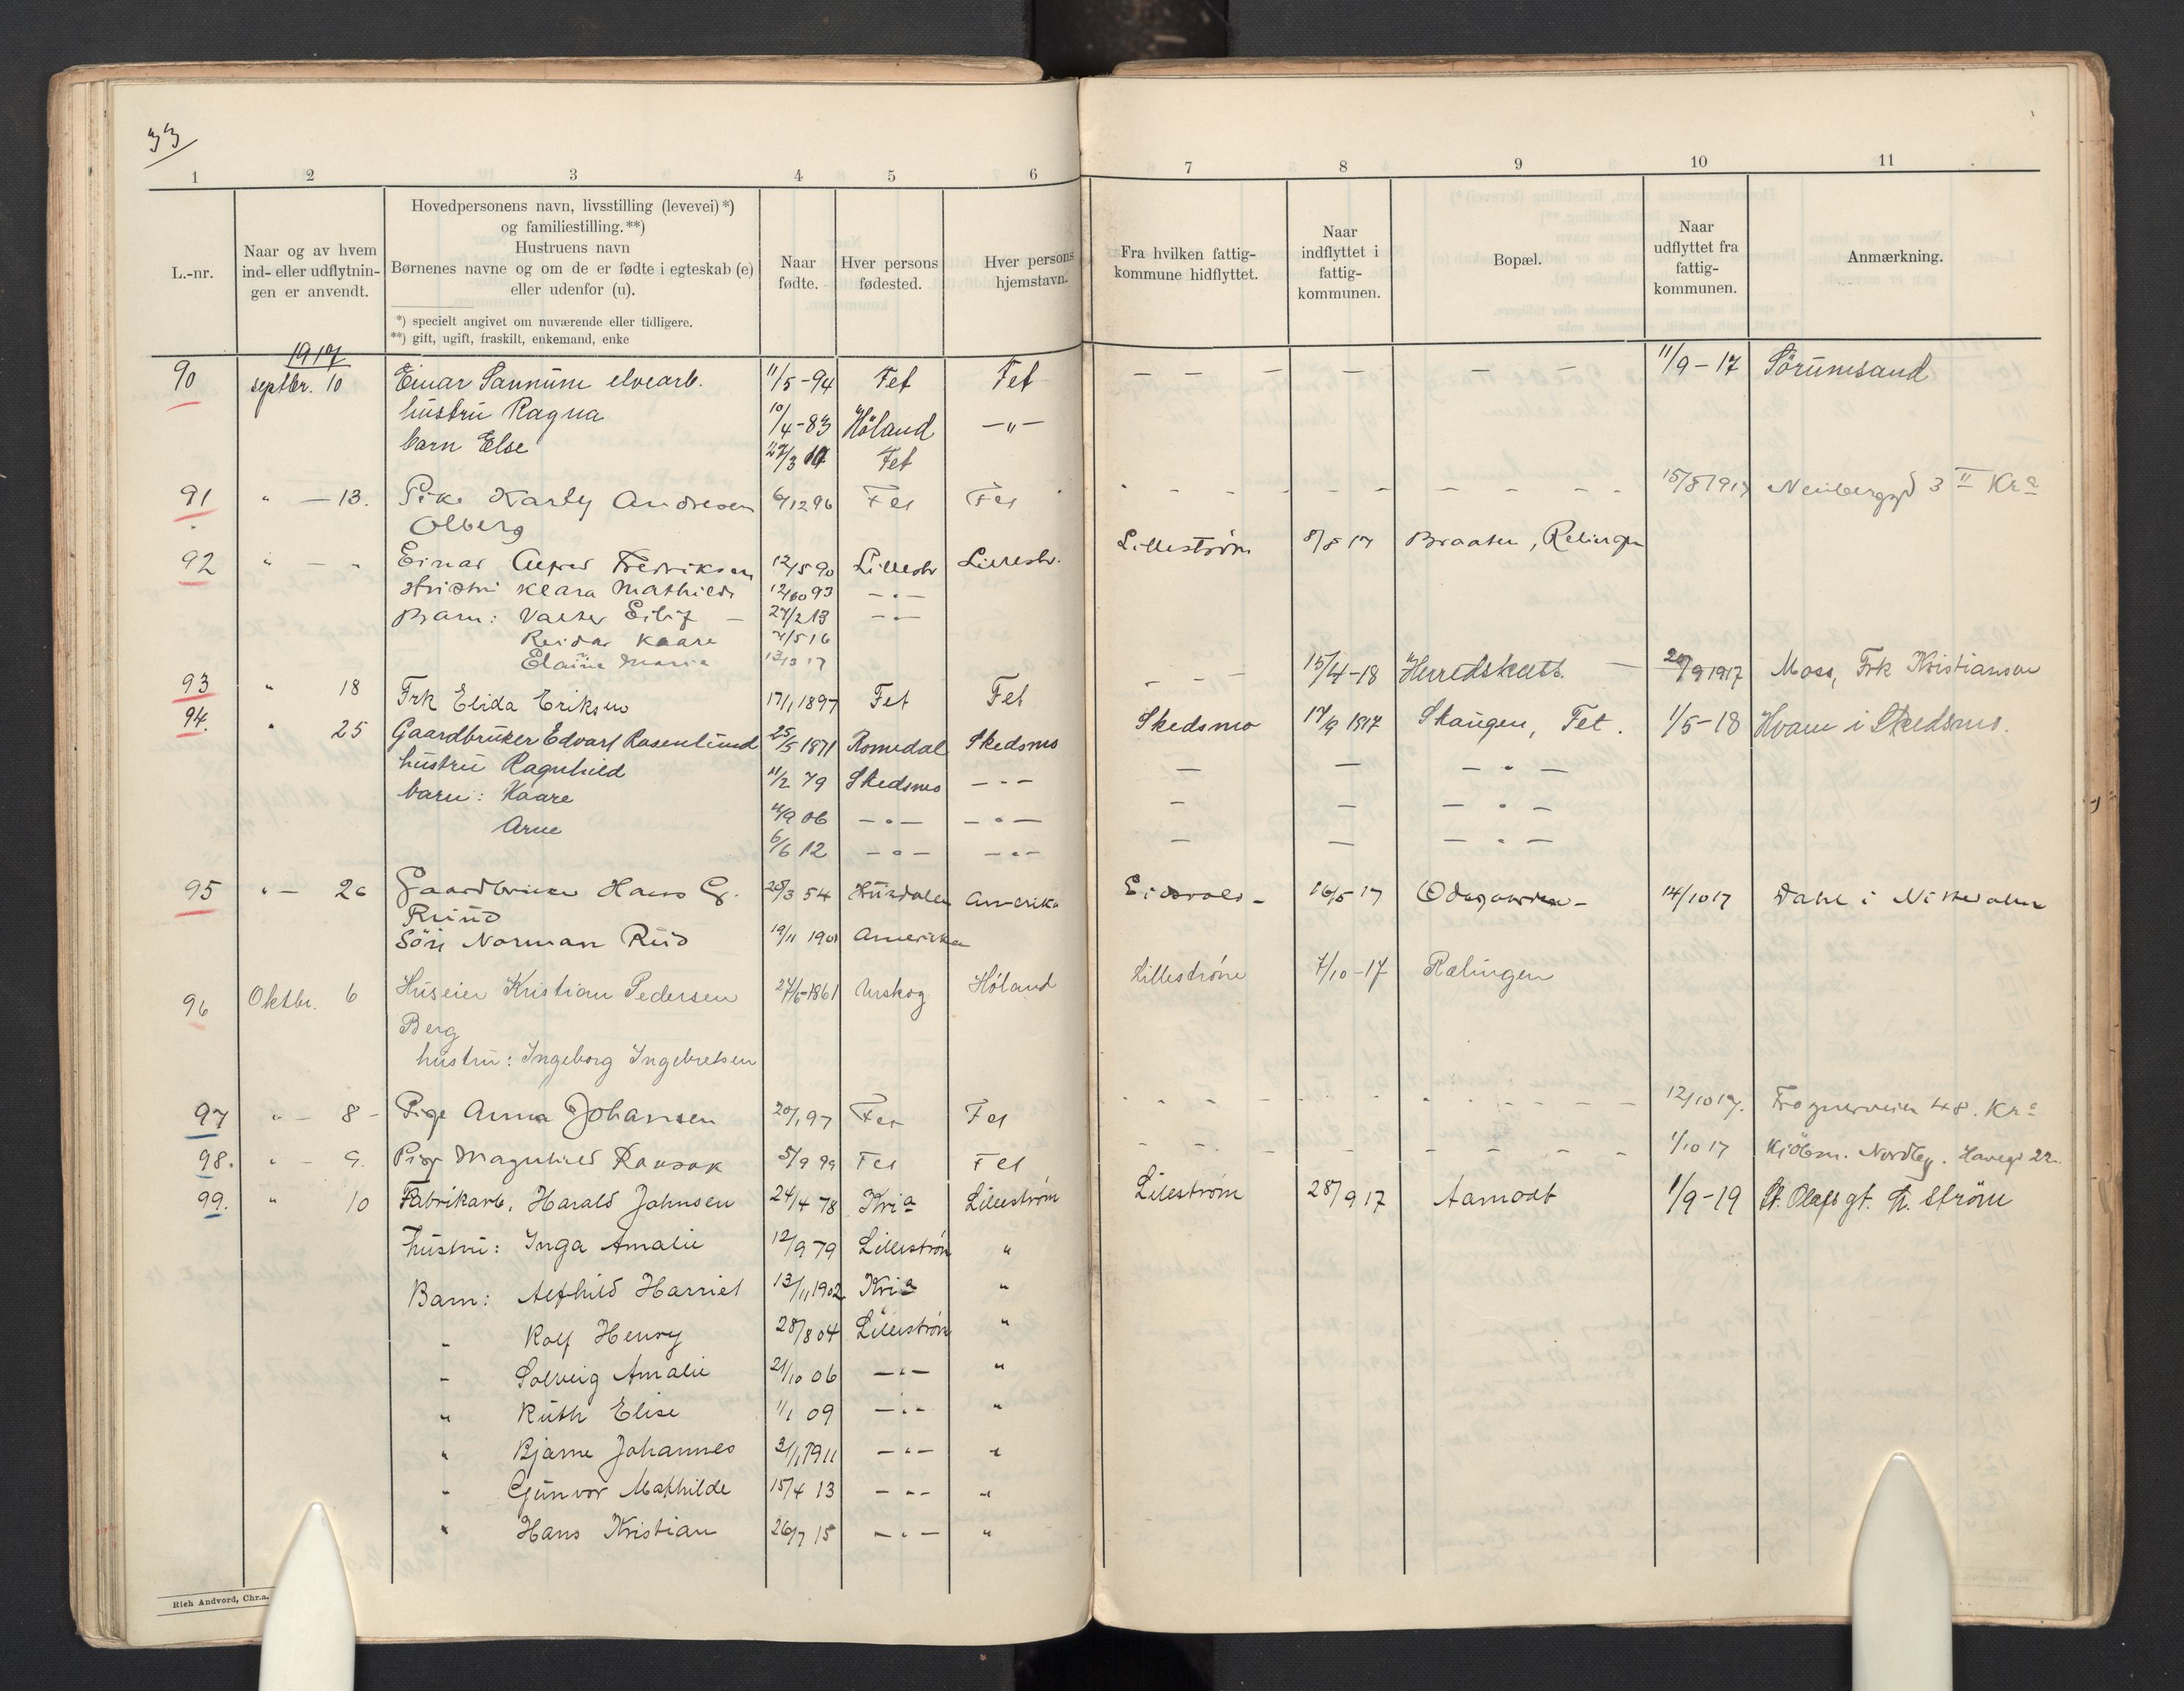 33
1 2 3 4 5 6 7 8 9 10 11
L.-nr.
Naar og av hvem
ind- eller udflytnin-
gen er anvendt.
Hovedpersonens navn, livsstilling (levevei)*)
og familiestilling.**)
Hustruens navn
Børnenes navne og om de er fødte i egteskab (e)
eller udenfor (u).
*) specielt angivet om nuværende eller tidligere.
**) gift, ugift, fraskilt, enkemand, enke
Naar
fødte.
Hver persons
fødested.
Hver persons
hjemstavn.
Fra hvilken fattig-
kommune hidflyttet.
Naar
indflyttet i
fattig-
kommunen.
Bopæl.
Naar
udflyttet fra
fattig-
kommunen.
Anmærkning.
1917
90 septbr. 10 Einar Sannum elvearb. 11/5-94 Fet Fet — — — — — — — 11/9-17 Sørumsand
hustru Ragna 10/4-83 Høland —"—
barn Else 27/3 17 Fet
91 " — 13. Pike Karly Andresen 6/12 96 Fet Fet - - - - - - - - - - 15/8 1917 3 II Kra
Olberg
92 " — " Einar Alfred Fredriksen 12/5 90 Lillestr Lillestr. Lillestrøm 8/8 17 Braaten, Relingen
Hustru Klara Mathilde 12/10 93 — " —
Barn: Valter Eilif — 27/2 13 — " —
Reidar Kaare 4/5 16
Maria 13/3 17
93 " 18 Frk Elida Eriksen 17/1 1897 Fet Fet — — — 15/4-18 Herredskass. — 20/9 1917 Moss, Frk Kristiansen
94. " 25 Gaardbruker Edvart Rosenlund 25/5 1871 Romedal Skedsmo Skedsmo 17/9 1917 Skaugen, Fet. 1/5-18 Hvam i Skedsmo.
hustru Ragnhild 11/2 79 Skedsmo — " — — — — " —
barn: Kaare 4/9 06 — " — — " — — — — " —
Arne 6/6 12 — " — — " — — — — " —
95 " — 26 Gaardbruker Hans G. 28/3 54 Hurdalen Amerika Eidsvold - 16/5 17 Ødegaarden - 14/10 17 Dahl i Nittedalen
Ruud
Søn Norman Rud 19/11 1901 Amerika
96 Oktbr. 6 Huseier Kristian Pedersen 27/6-1861 Urskog Høland Lillestrøm 7/10-17 Rælingen
Berg
hustru: Ingeborg Ingebretsen
97 " — 8 - Pige Anna Johansen 20/1 97 Fet Fet - - - - - - - - - - 12/10 17. Frognerveien 48. Kra
98. " — 9. Pige Magnhild Ramsok 5/9 99 Fet Fet - - - - - - - - - 1/10 17 Kjøbm. Nordby. Haveg 22.
99. " 10 Fabrikarb. Harald Johnsen 24/4 78 Kria Lillestrøm Lillestrøm 28/9 17 Aamodt 1/9-19 St. Olafs gt. L. strøm
hustru: Inga Amalie 12/9 79 Lillestrøm "
Barn: Alfhild Harriet 13/11 1902 Kria "
" Rolf Henry 28/8 04 Lillestrøm "
" Solveig Amalie 21/10 06 — " — "
" Ruth Elise 1/1 09 — " — "
" Bjarne Johannes 3/1 1911 — " — "
" Gunvor Mathilde 15/4 13 — " — "
" Hans Kristian 26/7 15 — " — "
Rich Andvord, Chr.a.